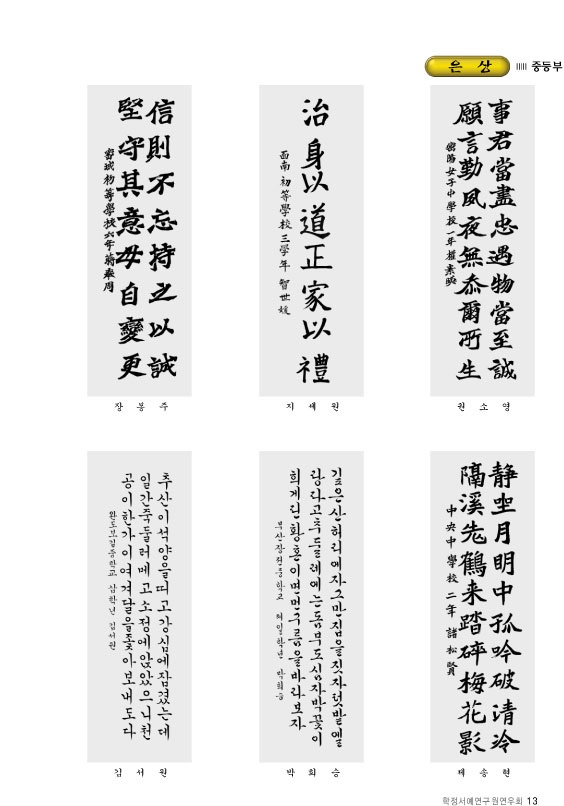 은 상 중등부
信則不忘持之以誠
堅守其意毋自變更
密城初等學校六年 蔣奉周
장 봉 주
治身以道正家以禮
西南初等學校三學年 智世媛
지 세 원
事君當盡忠遇物當至誠
願言勤夙夜無忝爾所生
密陽女子中學校一年
원 소 영
추산이석양을띠고강심에잠겼는데
일간죽둘러메고소정에앉았으니천
공이한가이여겨달을좇아보내도다
완도보길중학교 삼학년 김서원
김 서 원
깊은산허리에자그만집을짓자텃밭엘
랑다고추둘레에는동부도심자박꽃이
희게핀황혼이면먼구름을바라보자
부산장전중학교 제일학년 박희승
박 희 승
静坐月明中孤吟破清泠
隔溪先鶴来踏碎梅花影
中央中學校 二年 諸松賢
제 송 현
학정서예연구원연우회 13